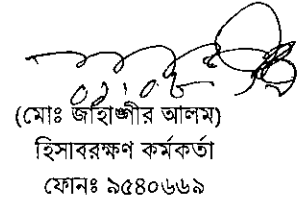 (মোঃ জাহাঙ্গীর আলম)
হিসাবরক্ষণ কর্মকর্তা
ফোনঃ ৯৫৪০৬৬৯